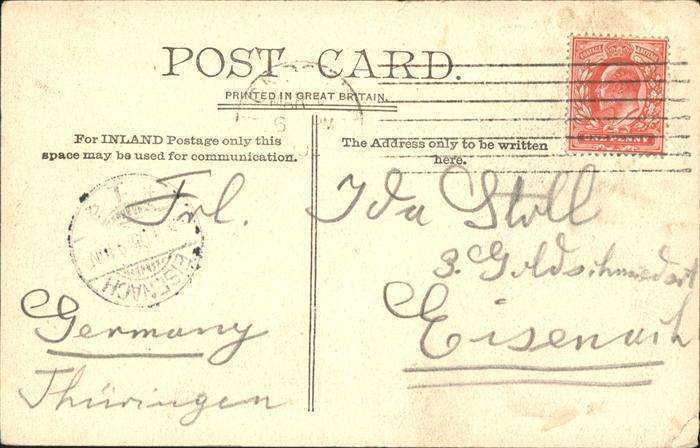 POST CARD.
PRINTED IN GREAT BRITAIN.
For INLAND Postage only this
space may be used for communication.
The Address only to be written
here.
POSTAGE REVENUE
ONE PENNY
EISENACH
Frl. Ida Stoll
3. Goldschmiedstr
Eisenach
Germany
Thüringen